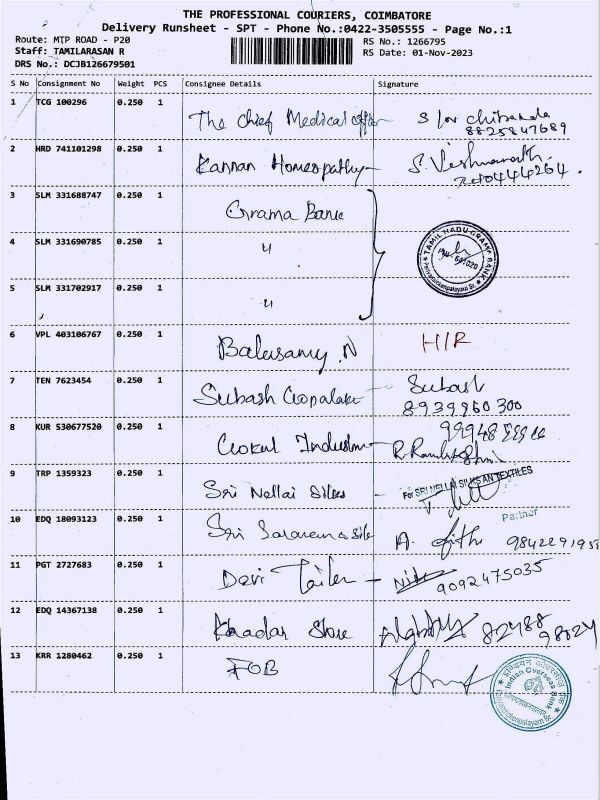 THE PROFESSIONAL COURIERS, COIMBATORE
Delivery Runsheet - SPT - Phone No.:0422-3505555 - Page No.:1
Route: MTP ROAD - P20
Staff: TAMILARASAN R
DRS No.: DCJB126679501
RS No.: 1266795
RS Date: 01-Nov-2023
S No Consignment No Weight PCS Consignee Details Signature
1 TCG 100296 0.250 1 The Chief Medical
8825847689
2 HRD 741101298 0.250 1 Kannan Homeopathy S. Vishwanath
3 SLM 331688747 0.250 1 Grama Bank
4 SLM 331690785 0.250 1 "
TAMIL NADU GRAMA BANK
5 SLM 331702917 0.250 1 "
6 VPL 403106767 0.250 1 Balusamy.N H/R
7 TEN 7623454 0.250 1 Subash Gopalake Subash
8939960300
8 KUR 530677520 0.250 1 Gokul
9 TRP 1359323 0.250 1 Sri Nellai Silks For SRI NELLAI SILKS AN TEXTILES
Partner
10 EDQ 18093123 0.250 1 Sri A.
11 PGT 2727683 0.250 1 Devi Tailer
9092475035
12 EDQ 14367138 0.250 1 Khadar Store 82488
13 KRR 1280462 0.250 1 FOB
Indian Overseas Bank